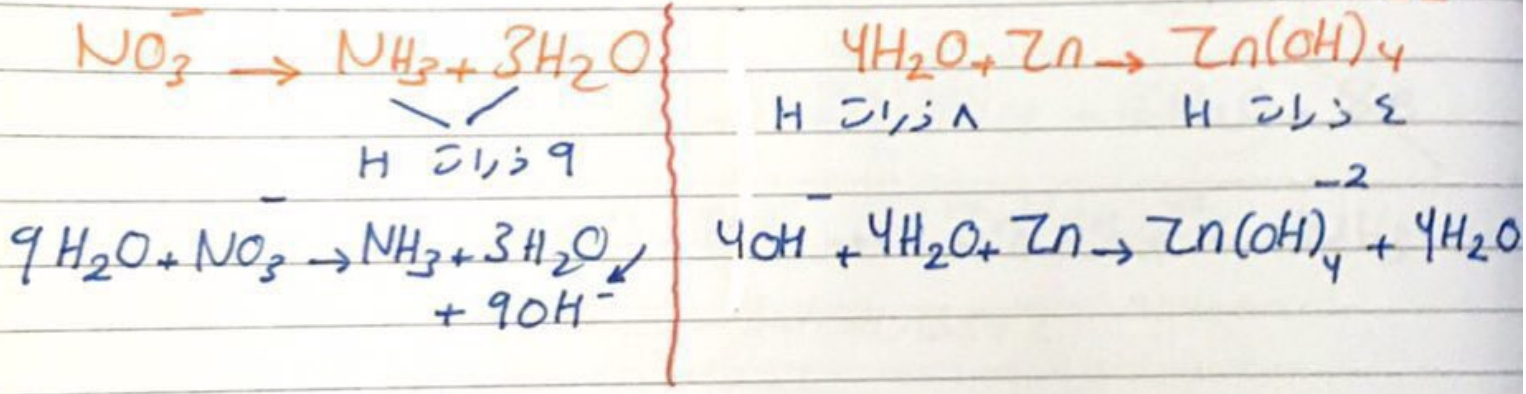 NO₃⁻ → NH₃ + 3H₂O
9 ذرات H
9H₂O + NO₃⁻ → NH₃ + 3H₂O
+ 9OH⁻
4H₂O + Zn → Zn(OH)₄
٨ ذرات H ٤ ذرات H
4OH⁻ + 4H₂O + Zn → Zn(OH)₄⁻² + 4H₂O